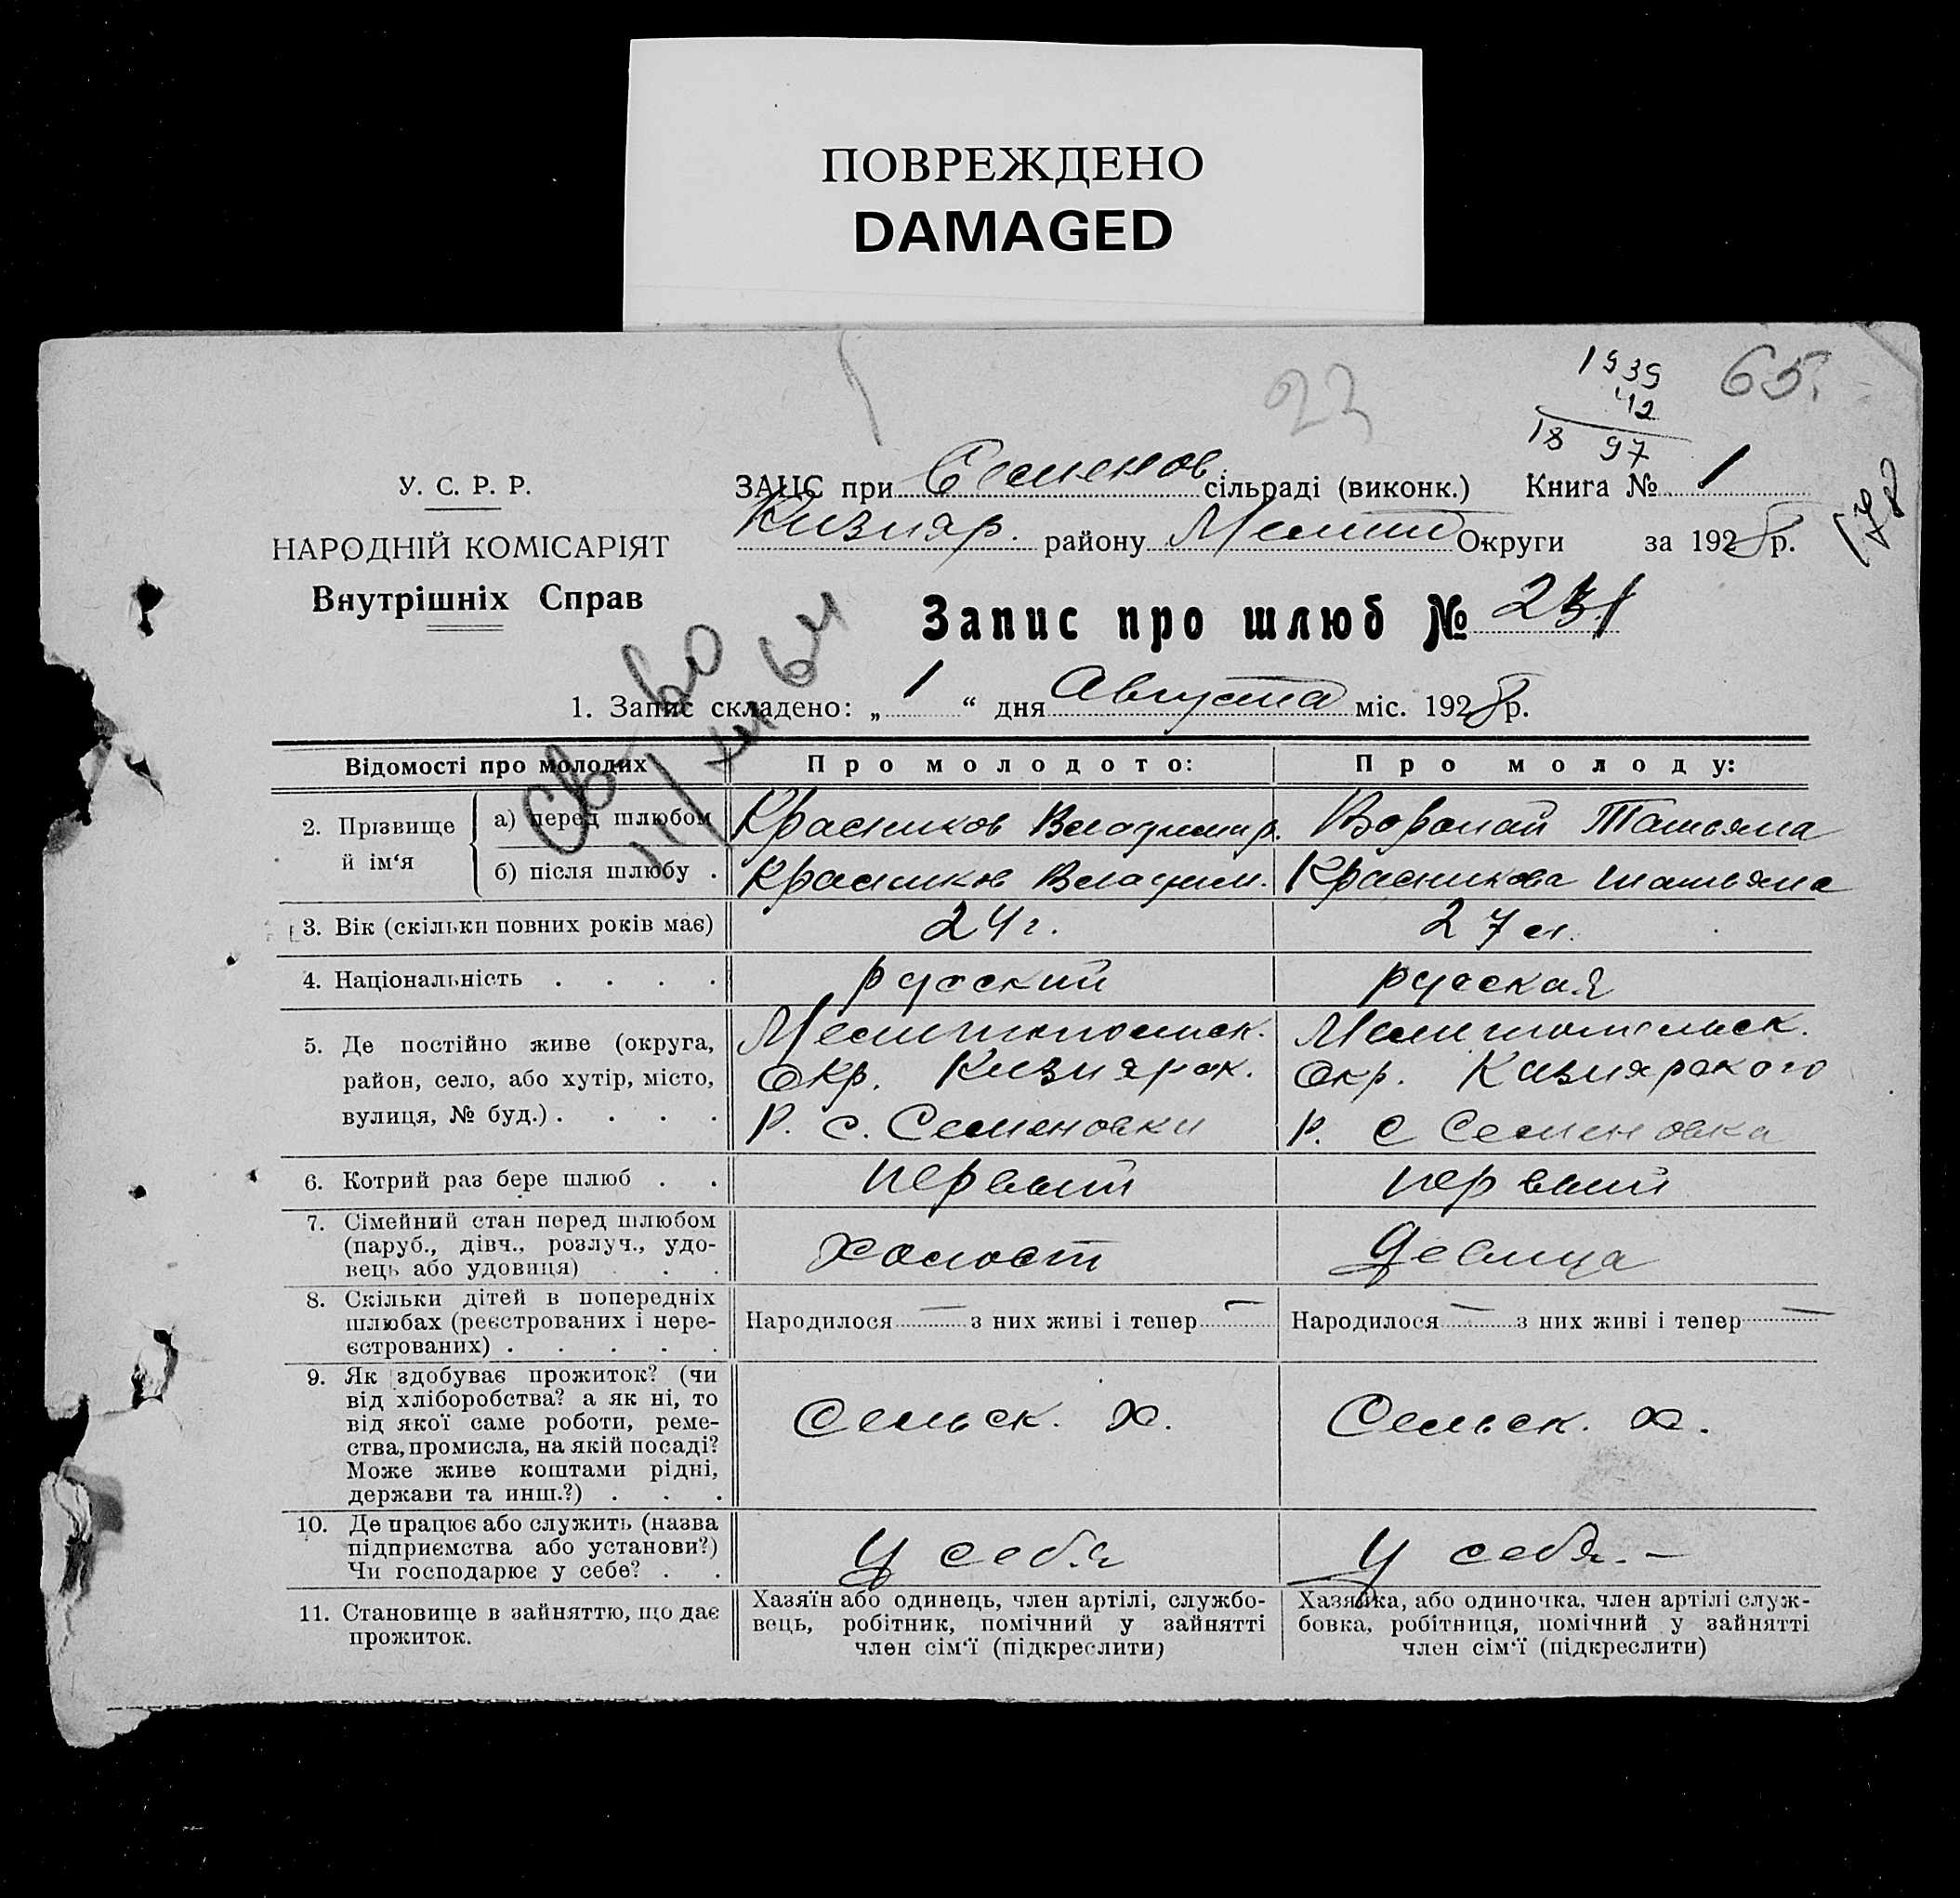 ПОВРЕЖДЕНО
DAMAGED
1939
42
1897
65.
23
У. С. Р. Р.
НАРОДНІЙ КОМІСАРІЯТ
Внутрішніх Справ
ЗАЦС при Семенов. сільраді (виконк.) Книга № 1
Кизияр. району Мелит Округи за 1928 р.
178
Запис про шлюб №
1. Запис складено: „ 1 “ дня Августа міс. 1928 р.
Св-во
Відомості про молодих Про молодого: Про молоду:
2. Прізвище й ім‘я
а) перед шлюбом Красников Владимир. Воропай Татьяна
б) після шлюбу . Красников Владим. Красникова Татьяна
3. Вік (скільки повних років має) 24 г. 27 л.
4. Національність . . . . русский русская
5. Де постійно живе (округа, район, село, або хутір, місто, вулиця, № буд.) . . . .
Мелитопольск. Мелитопольск.
Окр. Кизиярск. Окр. Кизиярского
Р. с. Семеновки Р. с Семеновка
6. Котрий раз бере шлюб . . первый первый
7. Сімейний стан перед шлюбом
(паруб., дівч., розлуч., удо-
вець або удовиця) . . . холост девица
8. Скільки дітей в попередніх
шлюбах (реєстрованих і нере-
єстрованих) . . . . .
Народилося — з них живі і тепер — Народилося — з них живі і тепер —
9. Як здобуває прожиток? (чи
від хліборобства? а як ні, то
від якої саме роботи, реме-
ства, промисла, на якій посаді?
Може живе коштами рідні,
держави та инш.?) . . .
Сельск. х. Сельск. х.
10. Де працює або служить (назва
підприємства або установи?)
Чи господарює у себе? . .
У себя У себя. –
11. Становище в зайняттю, що дає
прожиток.
Хазяїн або одинець, член артілі, службо-
вець, робітник, помічний у зайнятті
член сім‘ї (підкреслити)
Хазяйка, або одиночка, член артілі служ-
бовка, робітниця, помічний у зайнятті
член сім‘ї (підкреслити)